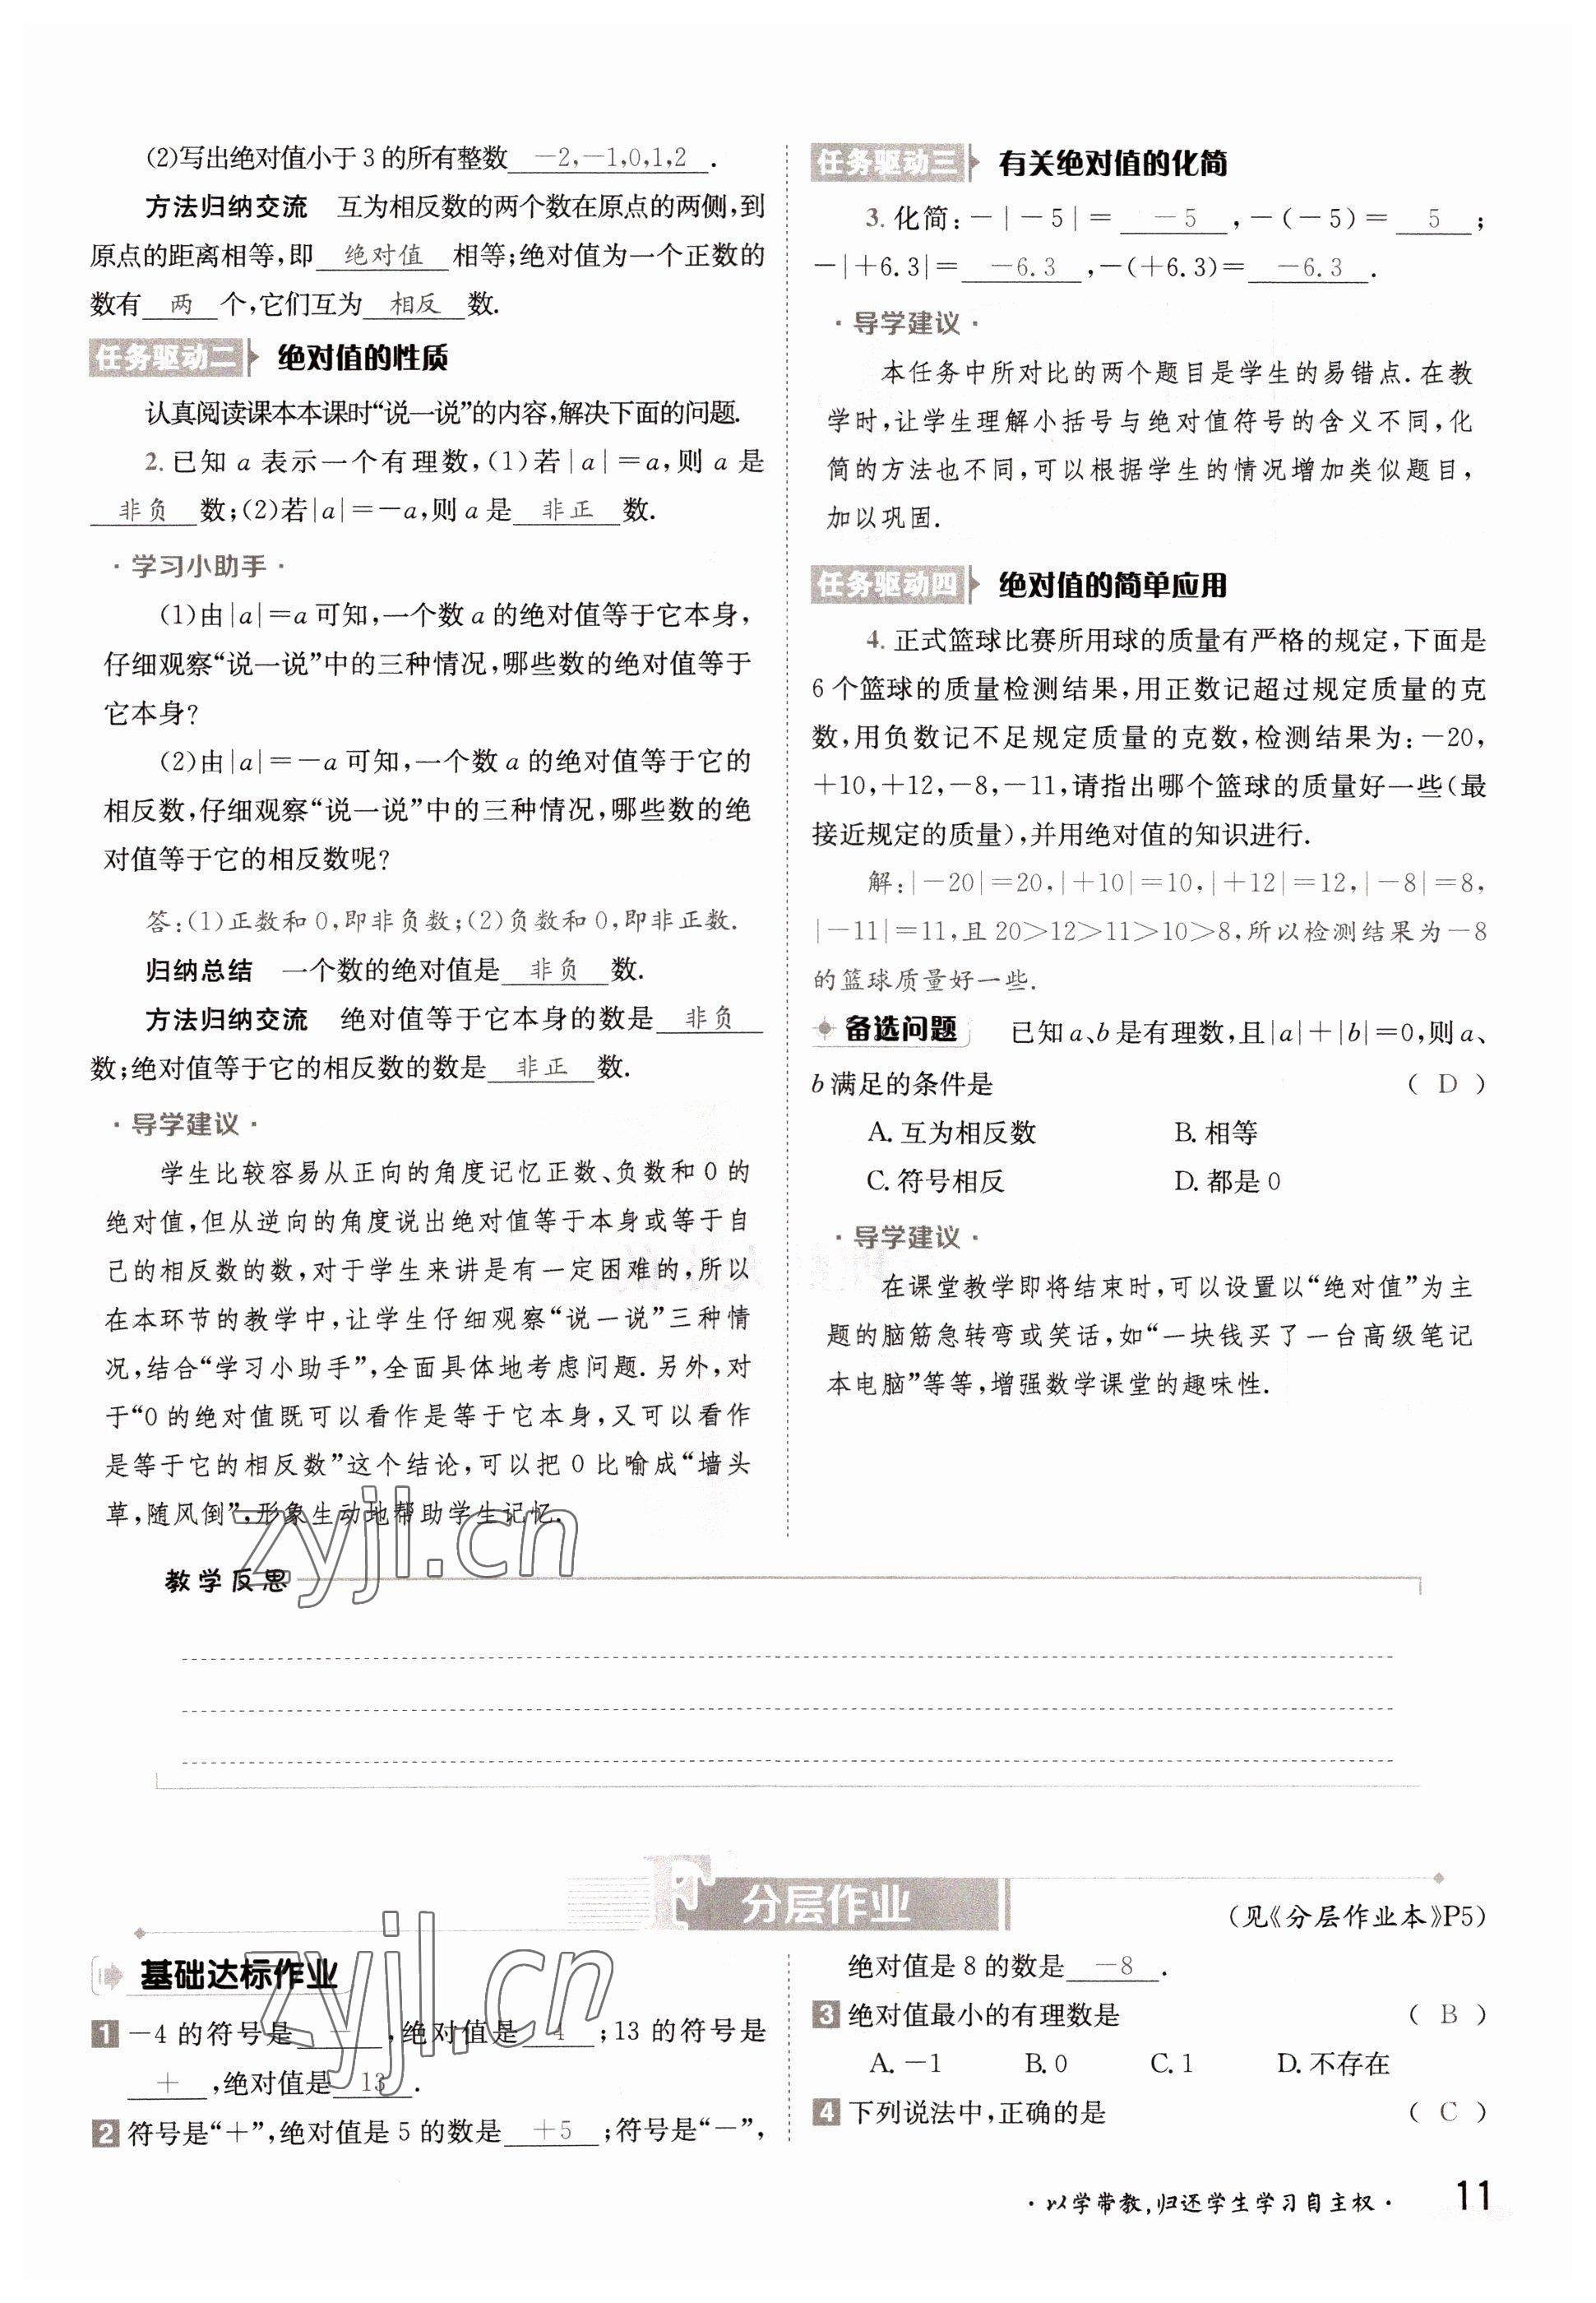 (2)写出绝对值小于3的所有整数 －2,－1,0,1,2 .
方法归纳交流 互为相反数的两个数在原点的两侧,到
原点的距离相等,即 绝对值 相等;绝对值为一个正数的
数有 两 个,它们互为 相反 数.
任务驱动二 绝对值的性质
认真阅读课本本课时“说一说”的内容,解决下面的问题.
2.已知 a 表示一个有理数,(1)若|a|＝a,则 a 是
非负 数;(2)若|a|＝－a,则 a 是 非正 数.
·学习小助手·
(1)由|a|＝a 可知,一个数 a 的绝对值等于它本身,
仔细观察“说一说”中的三种情况,哪些数的绝对值等于
它本身?
(2)由|a|＝－a 可知,一个数 a 的绝对值等于它的
相反数,仔细观察“说一说”中的三种情况,哪些数的绝
对值等于它的相反数呢?
答:(1)正数和0,即非负数;(2)负数和0,即非正数.
归纳总结 一个数的绝对值是 非负 数.
方法归纳交流 绝对值等于它本身的数是 非负
数;绝对值等于它的相反数的数是 非正 数.
·导学建议·
学生比较容易从正向的角度记忆正数、负数和0的
绝对值,但从逆向的角度说出绝对值等于本身或等于自
己的相反数的数,对于学生来讲是有一定困难的,所以
在本环节的教学中,让学生仔细观察“说一说”三种情
况,结合“学习小助手”,全面具体地考虑问题.另外,对
于“0的绝对值既可以看作是等于它本身,又可以看作
是等于它的相反数”这个结论,可以把0比喻成“墙头
草,随风倒”,形象生动地帮助学生记忆.
任务驱动三 有关绝对值的化简
3.化简:－|－5|＝ －5 ,－(－5)＝ 5 ;
－|＋6.3|＝ －6.3 ,－(＋6.3)＝ －6.3 .
·导学建议·
本任务中所对比的两个题目是学生的易错点.在教
学时,让学生理解小括号与绝对值符号的含义不同,化
简的方法也不同,可以根据学生的情况增加类似题目,
加以巩固.
任务驱动四 绝对值的简单应用
4.正式篮球比赛所用球的质量有严格的规定,下面是
6个篮球的质量检测结果,用正数记超过规定质量的克
数,用负数记不足规定质量的克数,检测结果为:－20,
＋10,＋12,－8,－11,请指出哪个篮球的质量好一些(最
接近规定的质量),并用绝对值的知识进行.
解:|－20|＝20,|＋10|＝10,|＋12|＝12,|－8|＝8,
|－11|＝11,且20＞12＞11＞10＞8,所以检测结果为－8
的篮球质量好一些.
备选问题 已知a、b是有理数,且|a|＋|b|＝0,则a、
b满足的条件是 ( D )
A.互为相反数 B.相等
C.符号相反 D.都是0
·导学建议·
在课堂教学即将结束时,可以设置以“绝对值”为主
题的脑筋急转弯或笑话,如“一块钱买了一台高级笔记
本电脑”等等,增强数学课堂的趣味性.
zyjl.cn
教学反思
F 分层作业
(见《分层作业本》P5)
基础达标作业
zyjl.cn
1 －4 的符号是 － ,绝对值是 4 ;13 的符号是
＋ ,绝对值是 13 .
2 符号是“＋”,绝对值是 5 的数是 ＋5 ;符号是“－”,
绝对值是 8 的数是 －8 .
3 绝对值最小的有理数是 ( B )
A.－1 B.0 C.1 D.不存在
4 下列说法中,正确的是 ( C )
·以学带教,归还学生学习自主权· 11